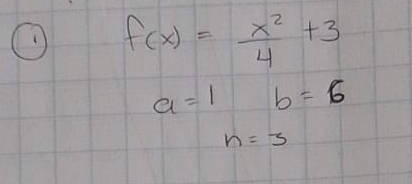 ① f(x) = x²/4 + 3
a = 1 b = 6
n = 3